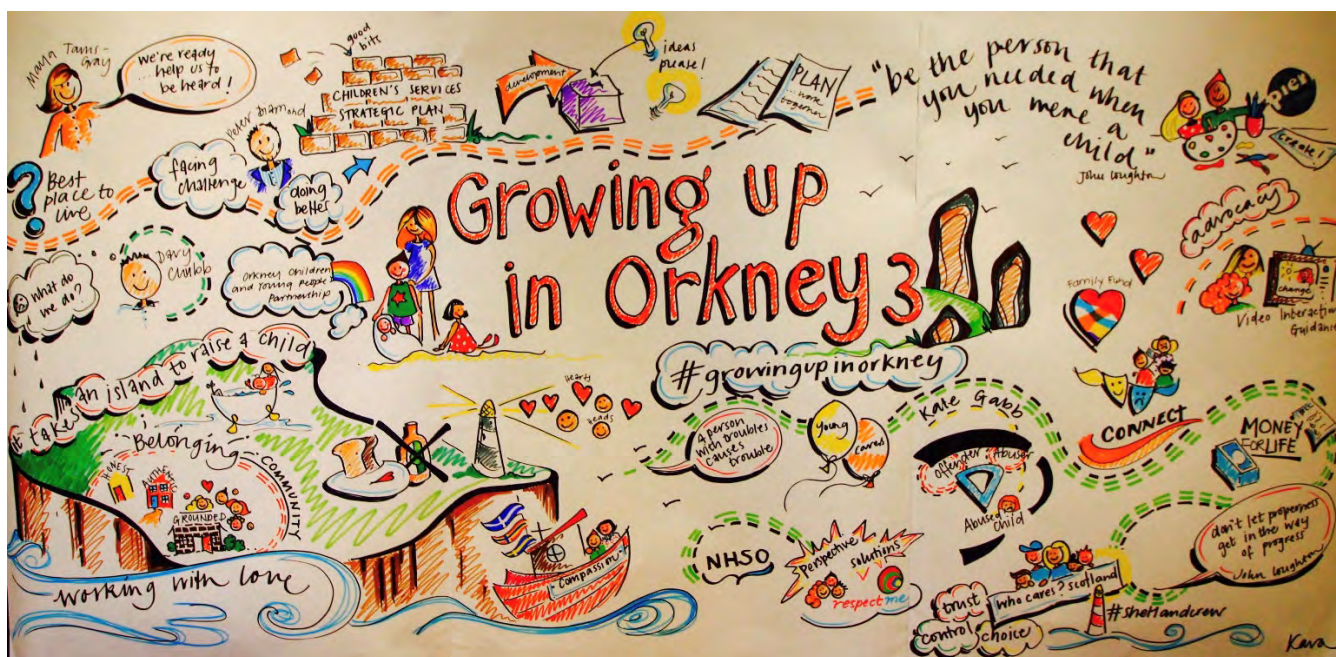 Tams-
Gray
we're ready
... help us to
be heard!
good
bits
CHILDREN'S SERVICES
STRATEGIC PLAN
development
ideas
please!
PLAN
... work
together
"be the person that
you needed when
you were a
child"
John Loughton
pier
create!
? Best
place to
live
facing
challenge
Peter Diamond
doing
better
Growing up
in Orkney 3
#growingupinorkney
what do
we do?
Davy
Chubb
Orkney Children
and Young People
Partnership
advocacy
change
Video Interaction
Guidance
Family Fund
it takes an island to raise a child
Belonging
COMMUNITY
HONEST
AUTHENTIC
GROUNDED
working with love
hearts
heads
Compassion
A person
with troubles
causes
trouble
Young
Carers
Kate Gabb
Offender Abuser
Abused Child
CONNECT
MONEY
FOR LIFE
NHSO
Perspective
solutions
respectme
who cares? scotland
trust
"control"
choice
#shetlandcrew
don't let properness
get in the way
of progress
John Loughton
Kara